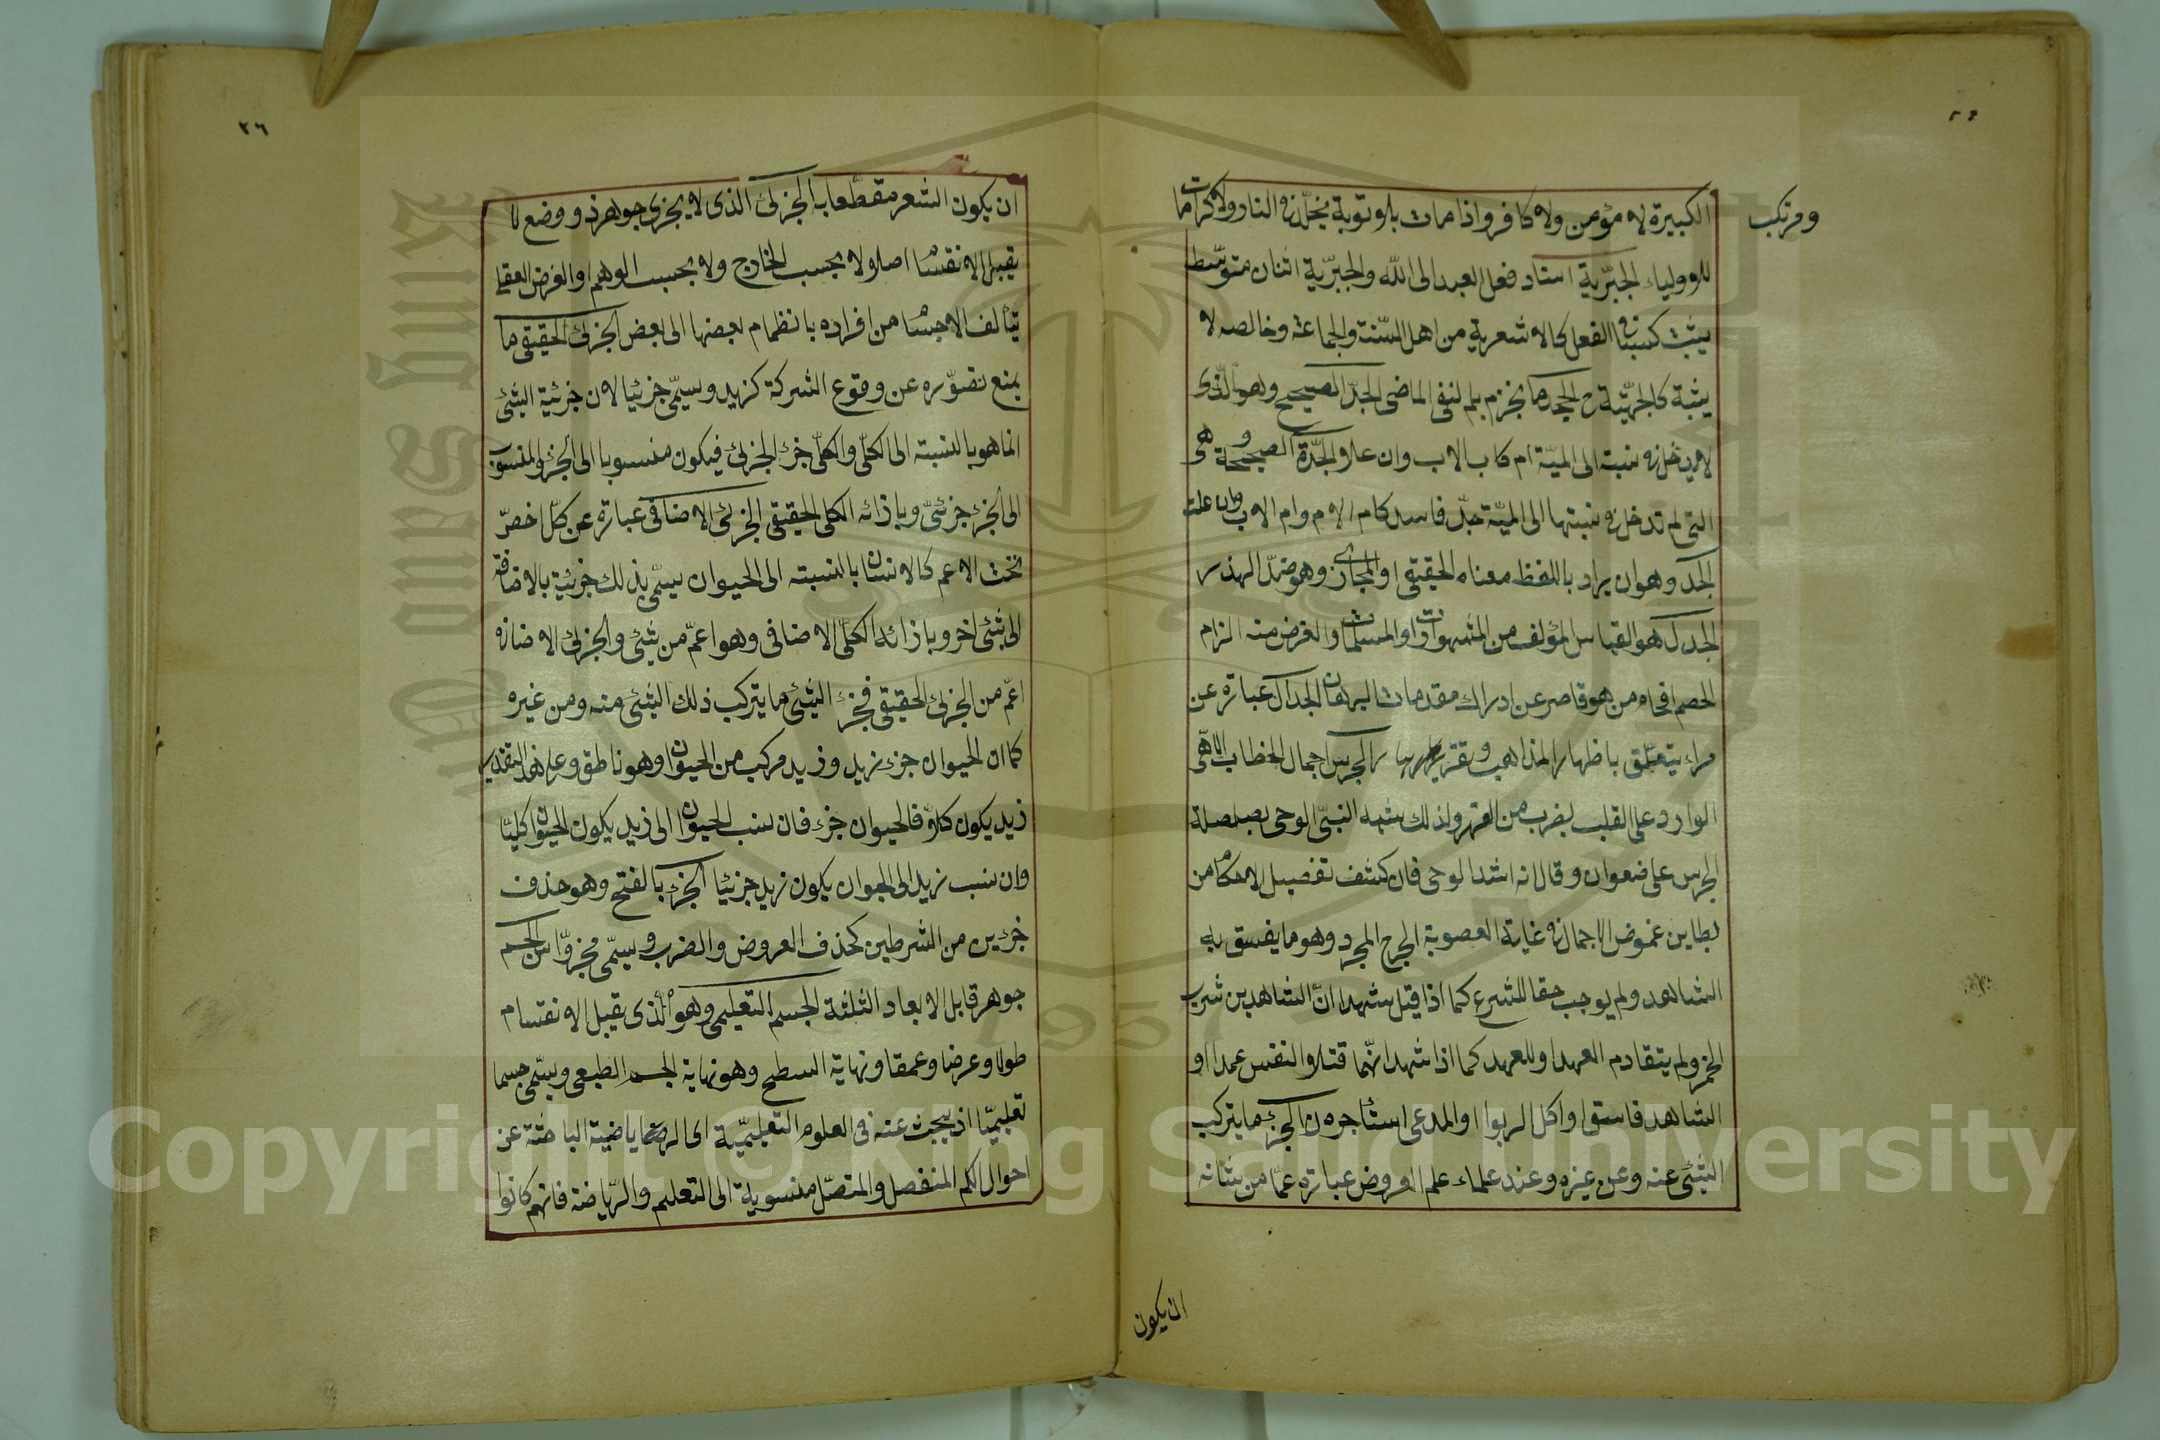 ومرتكب
الكبيرة لا مؤمن ولا كافر واذا مات بلا توبة يخلد في النار ولا كرامات
للاولياء الجبّرية اسناد فعل العبد الى اللّه والجبرّية اثنان متوسّطة
يثبت كسبا فى الفعل كالاشعرية من اهل السّنة والجماعة وخالصه لا
يثبة كالجهميّة ح الجحد ما انجزم بلم لنفى الماضى الجدّ الصحيح وهو الّذى
لا يدخل فى نسبته الى الميّة ام كاب الاب وان علا والجدّة الصحيحة وهى
التى لم تدخل فى نسبتها الى الميّة جدّ فاسد كام الام وام الاب وان علت
الجد وهو ان يراد باللفظ معناه الحقيقى او المجازى وهو ضدّ الهذر
الجدل هو القياس المؤلف من المشهورات او المسلمات والغرض منه الزام
الخصم افحام من هو قاصر عن ادراك مقدمات البرهان الجدال عبارة عن
مراء يتعلّق باظهار المذاهب وتقريرها الجرس اجمال الخطاب الالاهّى
الوارد على القلب بضرب من القهر ولذلك شبه النبّى الوحى بصلصلة
الجرس على صفوان وقال انه اشد الوحى فان كشف تفصيل الاحكام من
بطاين غموض الاجمال فى غاية الصعوبة الجرح المجرد وهو ما يفسق به
الشاهد ولم يوجب حقا للشرع كما اذا قيل شهد انّ الشاهدين شرب
الخمر ولم يتقادم العهد او للعبد كما اذا شهد انّهما قتلا النفس عمدا او
الشاهد فاسق او آكل الربوا او المدعى استأجره ن الجزء ما يتركب
الشئى عنه وعن غيره وعند علماء علم العروض عبارة عمّا من شانه
ان يكون
٢٦
ان يكون الشعر مقطّعا به الجزئ الذى لا يتجزى جوهر ذو وضع لا
يقبل الانقسام اصلا ولا بحسب الخارج ولا بحسب الوهم او الفرض العقلى
يتألف الاجسام من افراده بانظمام بعضها الى بعض الجزئ الحقيقى ما
يمنع تصوّره عن وقوع الشركة كزيد ويسمّى جزئيا لان جزئية الشئى
انما هو بالنسبته الى الكلّى والكلّى جزء الجزئى فيكون منسوبا الى الجزء والمنسوب
الى الجزء جزئىّ وبازائه الكلى الحقيقى الجزئى الاضافى عبارة عن كلّ اخصّ
تحت الاعم كالانسان بالنسبته الى الحيوان يسمّى بذلك جزئية بالاضافة
الى شئى اخر وبازائه الكلّى الاضافى وهو اعمّ من شئى والجزئ الاضافى
اعمّ من الجزئ الحقيقى فجزء الشئى ما يتركب ذلك الشئى منه ومن غيره
كما ان الحيوان جزء زيد وزيد مركب من الحيوان وهو ناطق وعلى هذا التقدير
زيد يكون كلاّ فالحيوان جزء فان نسب الحيوان الى زيد يكون الحيوان كليّا
وان نسب زيد الى الحيوان يكون زيد جزئيا الجزء بالفتح وهو حذف
جزئين من الشرطين كحذف العروض والضرب ويسمّى مجزوّا س الجسم
جوهر قابل الابعاد الثلثة الجسم التعليمى وهو الّذى يقبل الانقسام
طولا وعرضا وعمقا ونهاية السطح وهو نهاية الجسم الطبعى ويسّمى جسما
تعليميّا اذ يبحث عنه فى العلوم التعليميّة اى الرياضية الباحثة عن
احوال الكم المنفصل والمتصّل منسوبة الى التعليم والرّياضة فانهم كانوا
Copyright © King Saud University
King Saud University
1957